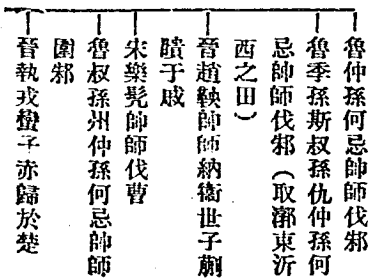 魯仲孫何忌帥師伐邾
魯季孫斯叔孫仇仲孫何
忌帥師伐邾（取漷東沂
西之田）
晉趙鞅帥師納衞世子蒯
聵于戚
宋樂髡帥師伐曹
魯叔孫州仲孫何忌帥師
圍邾
晉執戎蠻子赤歸於楚